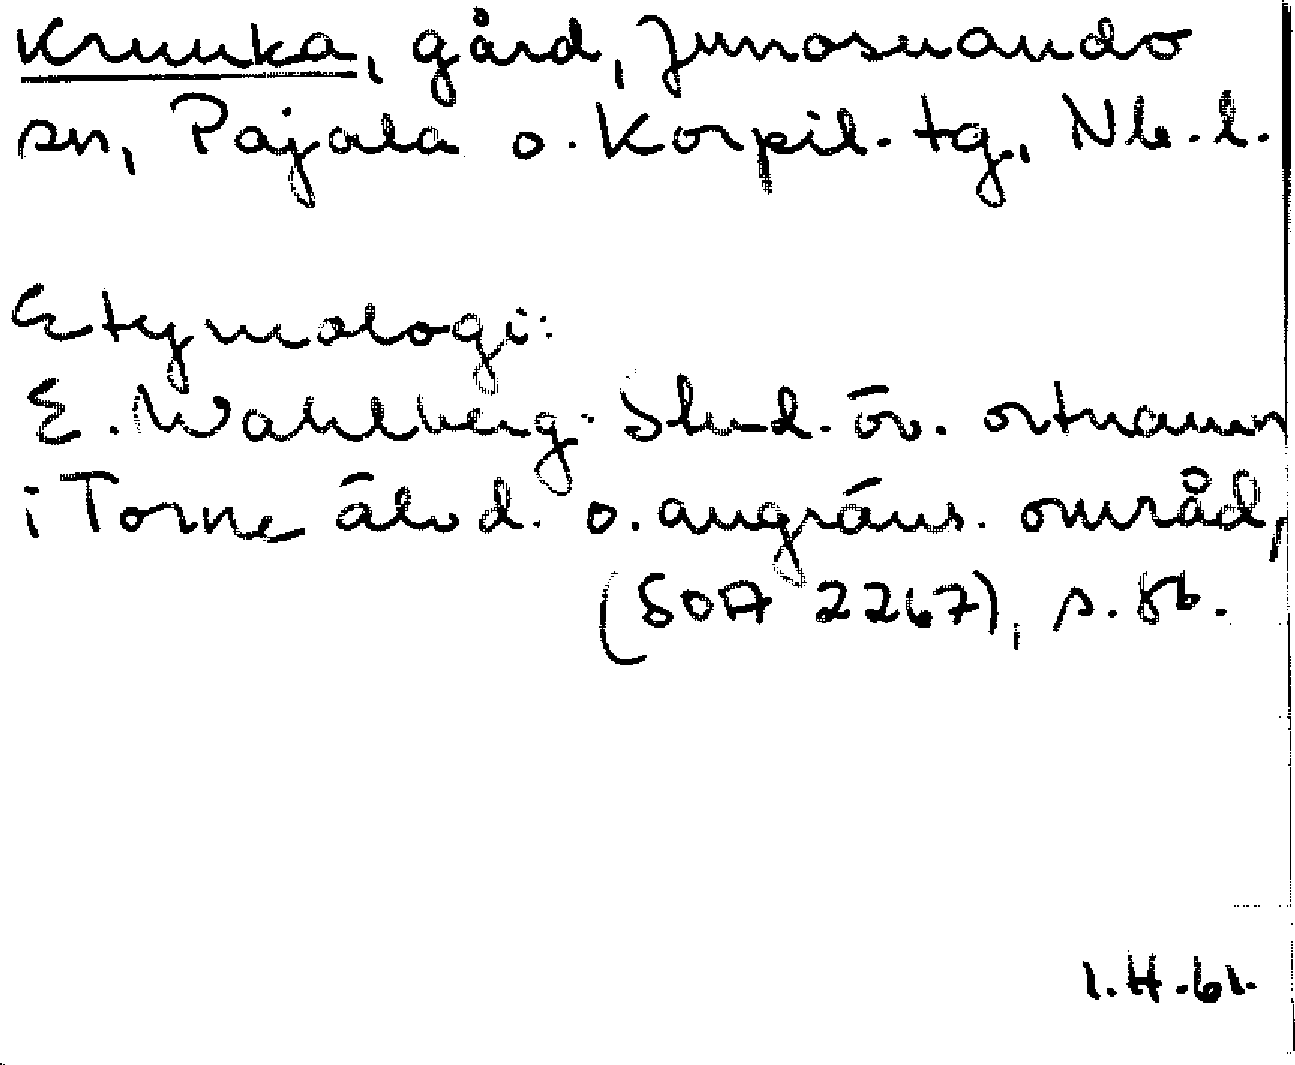 Kruuka, gård, Junosuando
sn, Pajala o. Korpil. tg, Nb. l.
Etymologi:
E. Wahlberg: Stud. öv. ortnamn
i Torne älvd. o. angräns. områd,
(SOA 2267), s.
1.H.61.